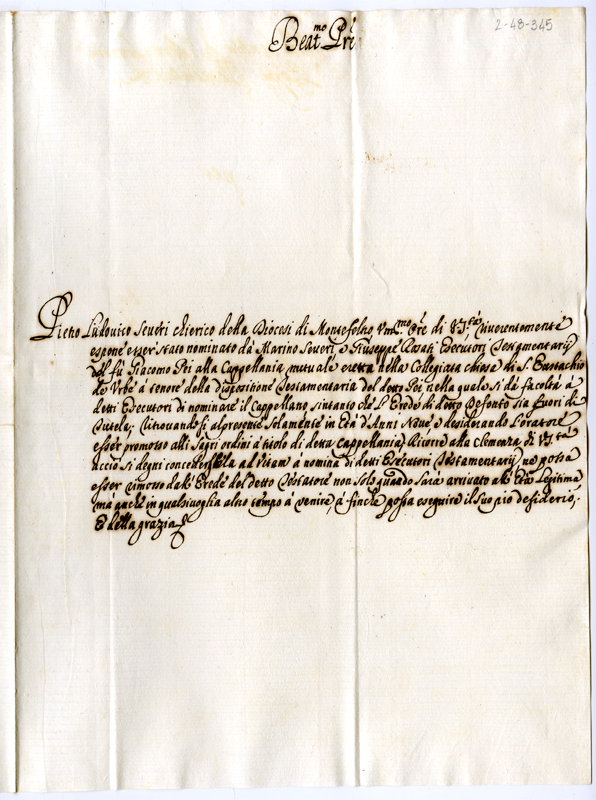 2-48-345
Beat.mo Pre
Pietro Ludovico Severi chierico della Diocesi di Montefeltro Vmil.mo Ore di V. S.tà riverentemente
espone esser stato nominato dà Marino Severi, e Giuseppe Rosati Esecutori Testamentarij
del fù Giacomo Pei alla Cappellania mutuale eretta nella Collegiata chiesa di S. Eustachio
de Vrbe à tenore della dispositione Testamentaria del detto Pei nella quale si dà facoltà à
detti Esecutori di nominare il Cappellano sintanto che l'Erede di detto Defonto sia fuori di
Tutela; ritrouandosi alpresente solamente in Età d'Anni Noue, e desiderando l'oratore
esser promosso alli Sagri ordini à titolo di detta Cappellania, Ricorre alla Clemenza di V. S.tà
acciò si degni concedergliela ad Vitam à nomina di detti Esecutori Testamentarij, ne possa
esser rimosso dall'Erede del detto Testatore non solo quando sarà arriuato all'Età Legitima
mà anche in qualsiuoglia altro tempo à venire, à finche possa eseguire il suo pio desiderio;
E della grazia